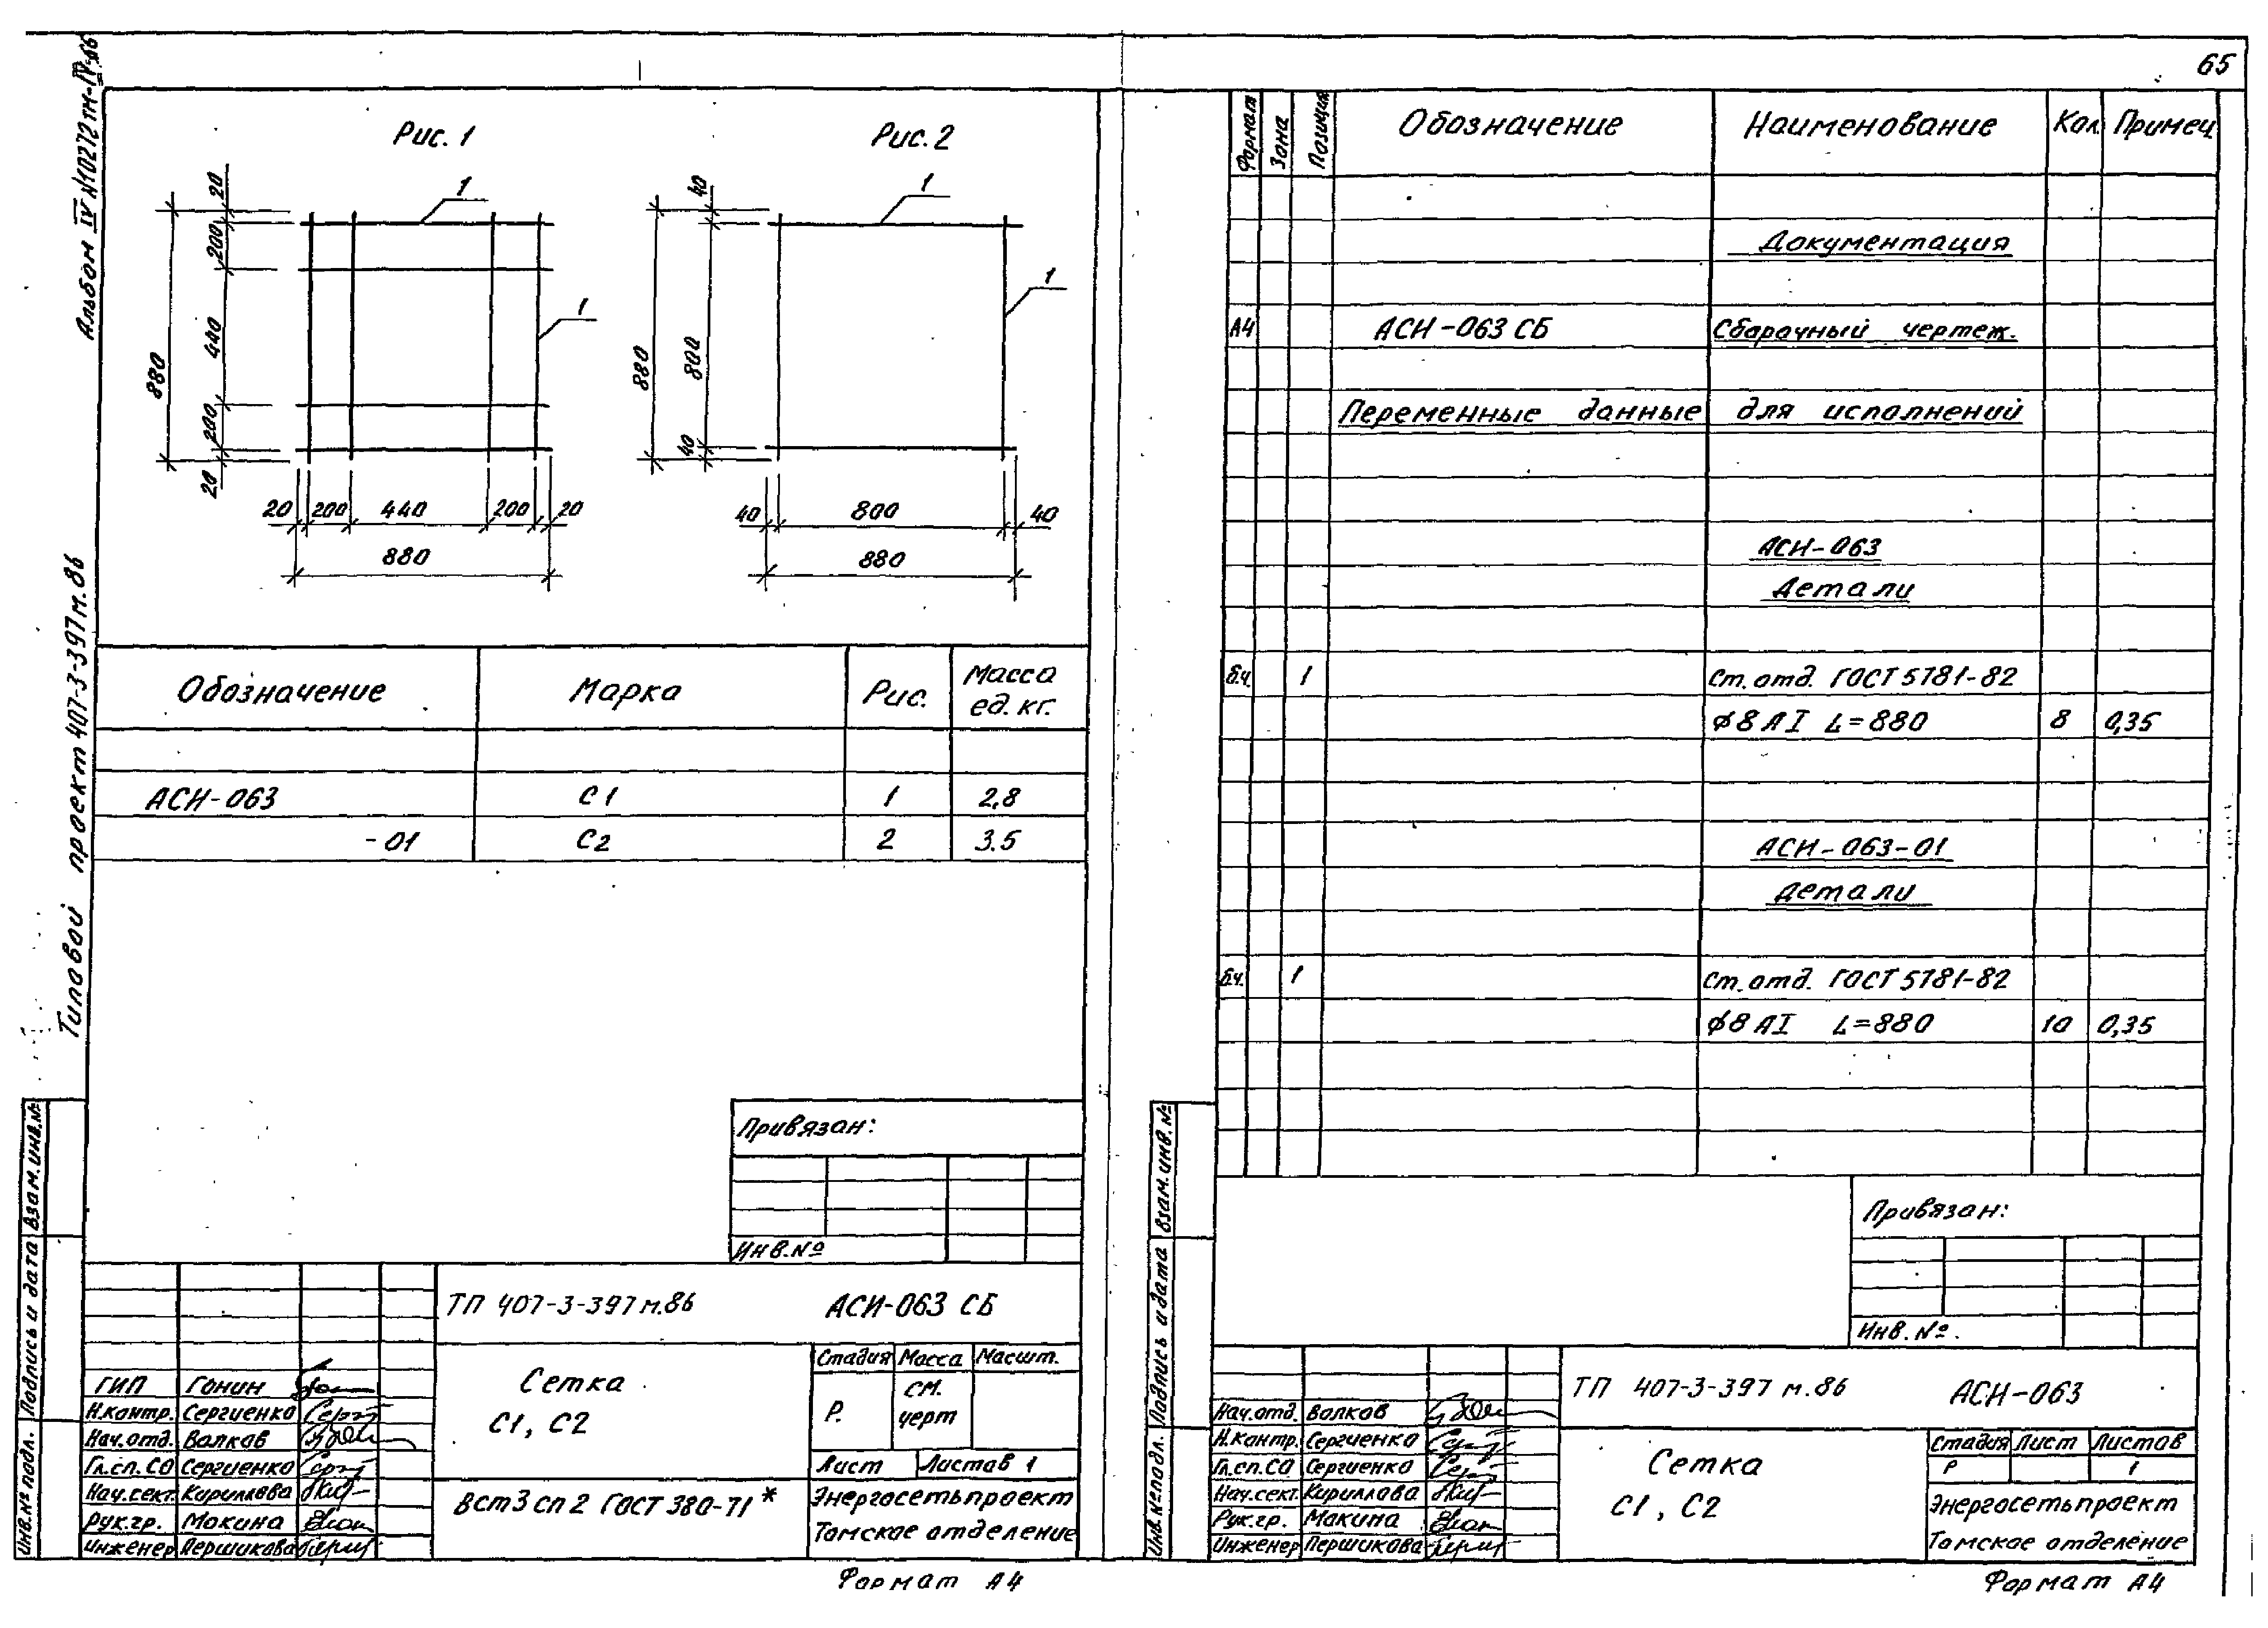 65
Альбом IV №10272тм-IV-66
Типовой проект 407-3-397м.86
Рис. 1
1
1
20
200
440
200
20
880
20 200 440 200 20
880
Рис. 2
1
1
40
800
40
880
40 800 40
880
Обозначение Марка Рис. Масса ед. кг.
АСИ-063 С1 1 2,8
-01 С2 2 3.5
Привязан:
Инв.№
ТП 407-3-397м.86 АСИ-063 СБ
Сетка
С1, С2
Стадия Масса Масшт.
Р. см. черт
Лист Листов 1
ВСт3сп2 ГОСТ 380-71*
Энергосетьпроект
Томское отделение
ГИП Гонин
Н.контр. Сергиенко
Нач.отд. Волков
Гл.сп.СО Сергиенко
Нач.сект. Кириллова
Рук.гр. Мокина
Инженер Першикова
Взам.инв.№
Подпись и дата
Инв.№ подл.
Формат А4
Формат Зона Позиция Обозначение Наименование Кол. Примеч.
Документация
А4 АСИ-063 СБ Сборочный чертеж.
Переменные данные для исполнений
АСИ-063
Детали
б.ч. 1 Ст. отд. ГОСТ 5781-82
ϕ8 АI L=880 8 0,35
АСИ-063-01
Детали
б.ч. 1 Ст. отд. ГОСТ 5781-82
ϕ8 АI L=880 10 0,35
Привязан:
Инв. №.
ТП 407-3-397 м.86 АСИ-063
Сетка
С1, С2
Стадия Лист Листов
Р 1
Энергосетьпроект
Томское отделение
Нач.отд. Волков
Н.контр. Сергиенко
Гл.сп.СО Сергиенко
Нач.сект. Кириллова
Рук.гр. Мокина
Инженер Першикова
Взам.инв.№
Подпись и дата
Инв.№ подл.
Формат А4